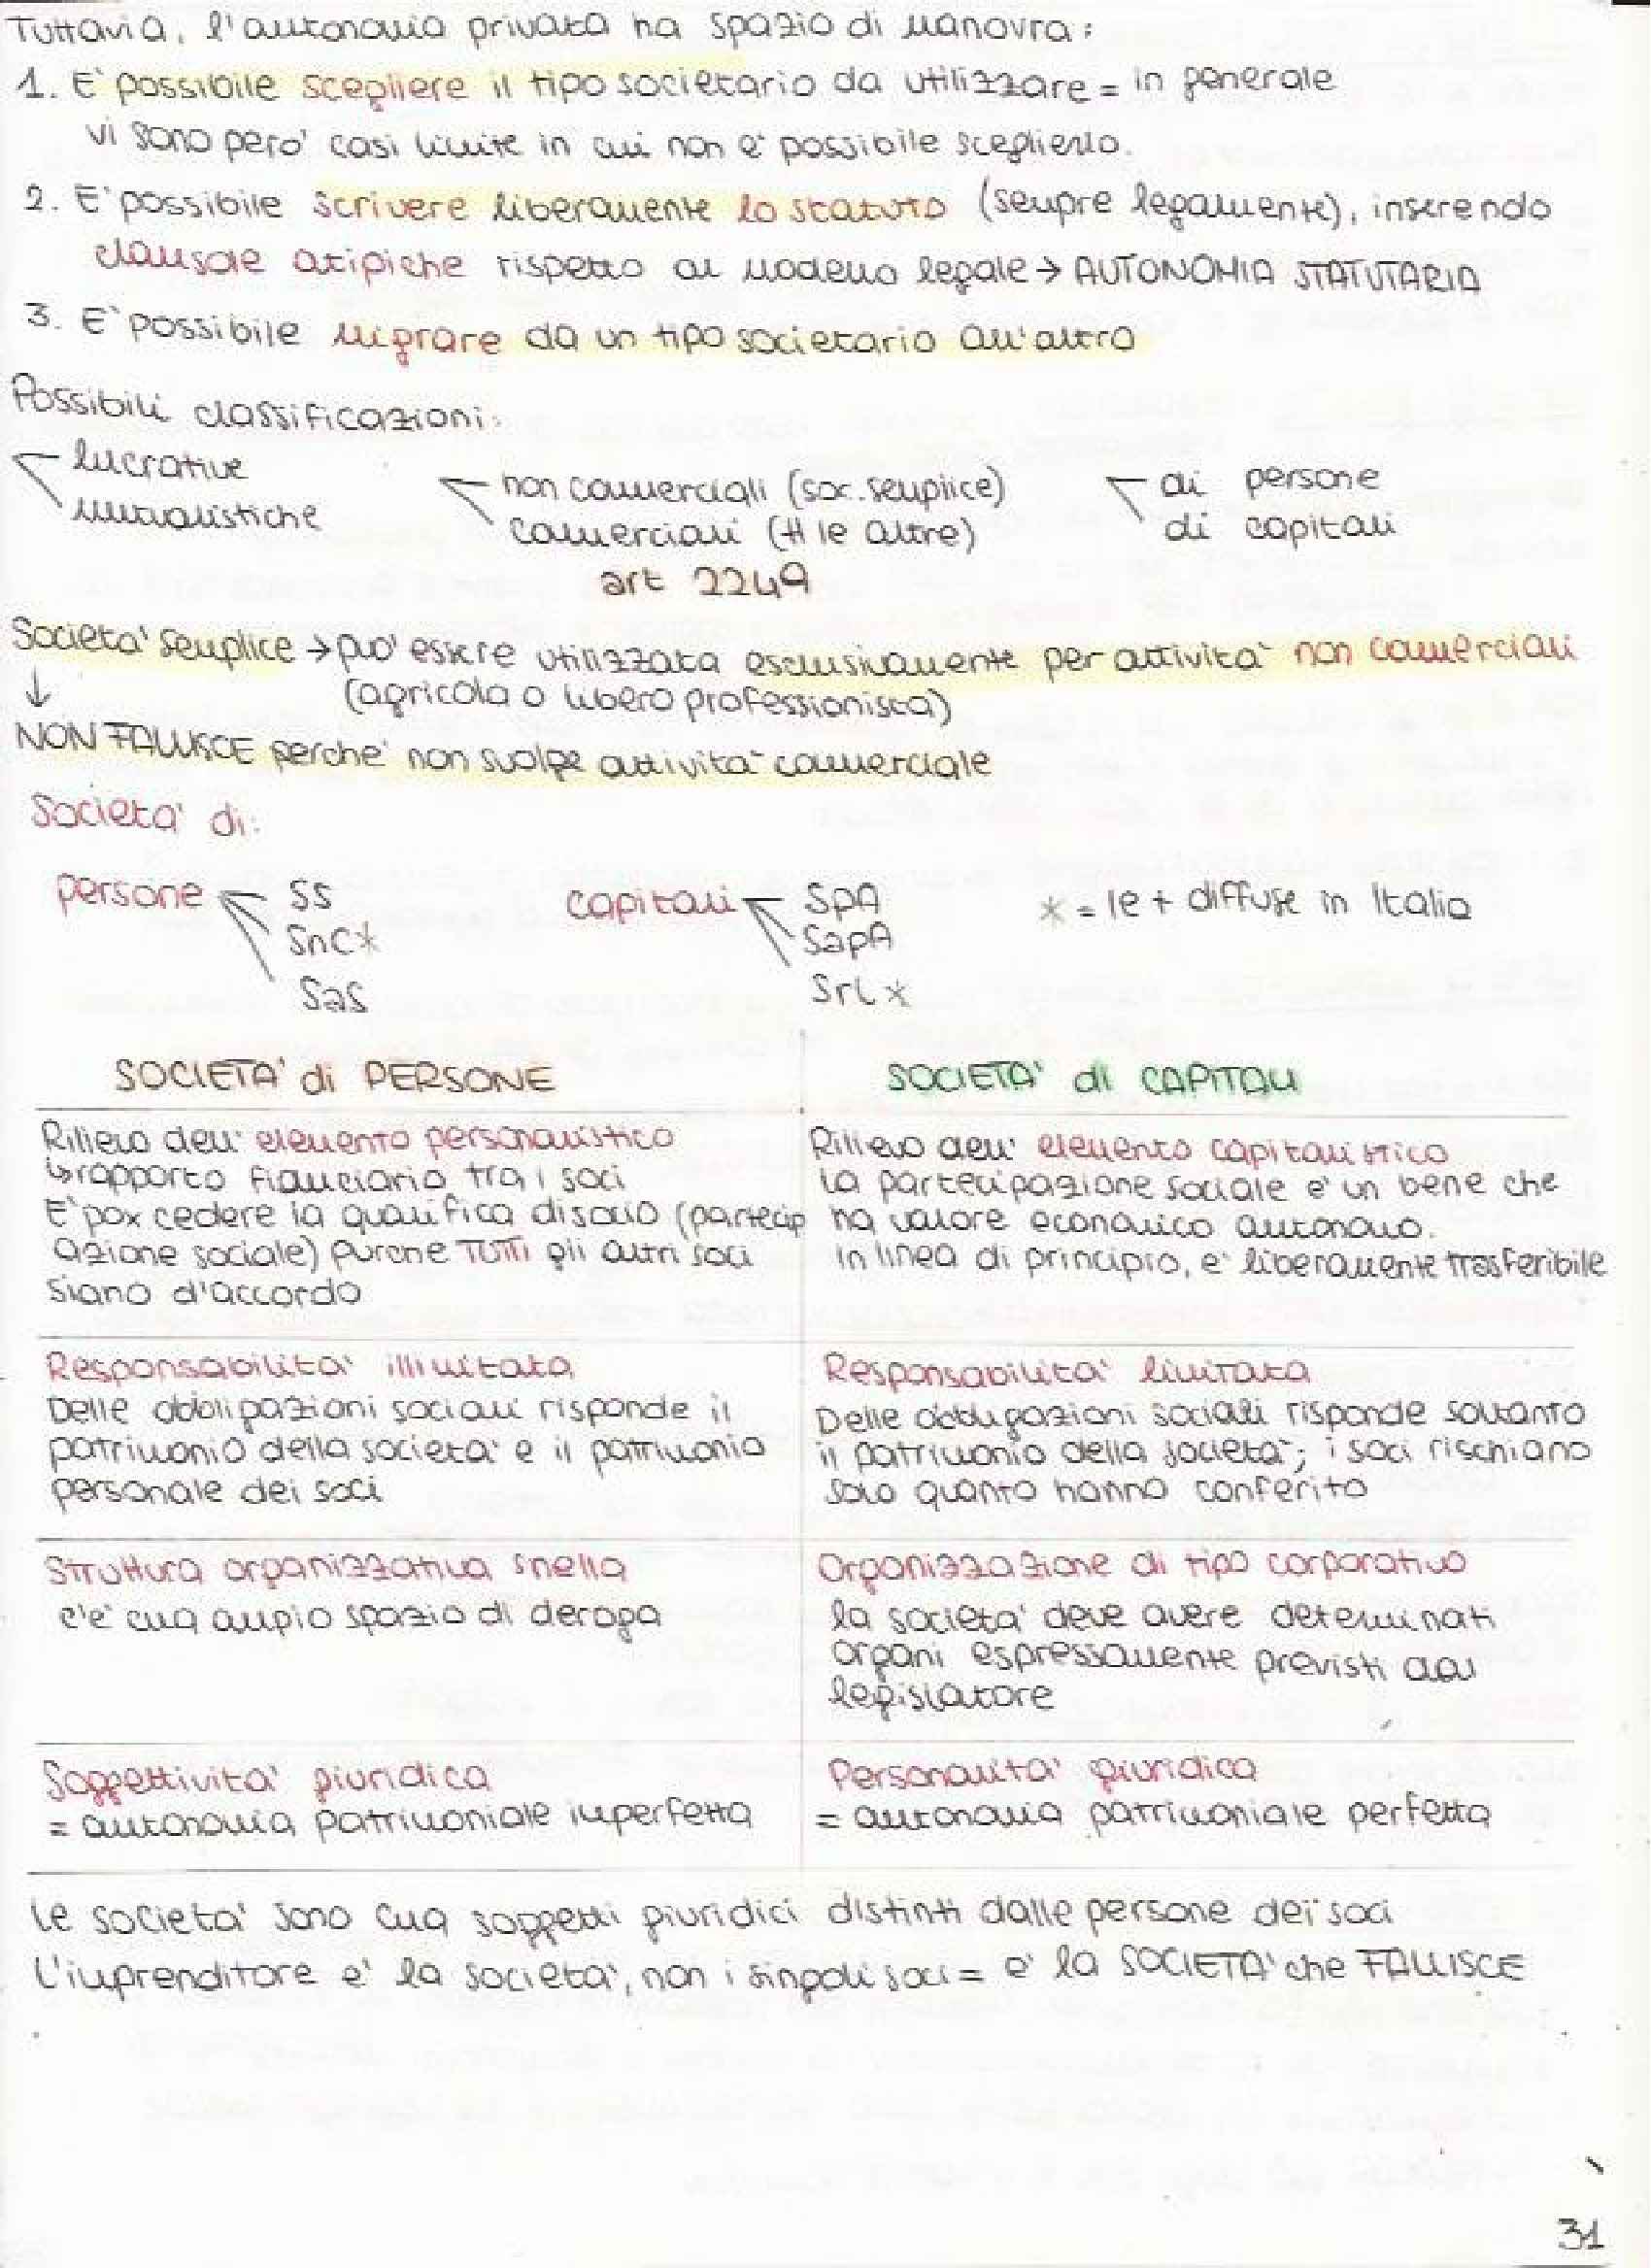 Tuttavia, l'autonomia privata ha spazio di manovra:
1. E' possibile scegliere il tipo societario da utilizzare = in generale
vi sono pero' casi limite in cui non e' possibile sceglierlo.
2. E' possibile scrivere liberamente lo statuto (sempre legalmente), inserendo
clausole atipiche rispetto al modello legale → AUTONOMIA STATUTARIA
3. E' possibile migrare da un tipo societario all'altro
Possibili classificazioni:
lucrative
mutualistiche
non commerciali (soc. semplice)
commerciali (tt le altre)
art 2249
di persone
di capitali
Societa' semplice → puo' essere utilizzata esclusivamente per attivita' non commerciali
↓ (agricola o libero professionista)
NON FALLISCE perche' non svolge attivita' commerciale
Societa' di:
persone
SS
Snc*
Sas
capitali
SpA
SapA
SrL *
* = le + diffuse in Italia
SOCIETA' di PERSONE
Rilievo dell' elemento personalistico
↳ rapporto fiduciario tra i soci
E' pox cedere la qualifica di socio (partecip
azione sociale) purche TUTTI gli altri soci
siano d'accordo
SOCIETA' di CAPITALI
Rilievo dell' elemento capitalistico
la partecipazione sociale e' un bene che
ha valore economico autonomo.
In linea di principio, e' liberamente trasferibile
Responsabilita' illimitata
Delle obbligazioni sociali risponde il
patrimonio della societa' e il patrimonio
personale dei soci
Responsabilita' limitata
Delle obbligazioni sociali risponde soltanto
il patrimonio della societa'; i soci rischiano
solo quanto hanno conferito
Struttura organizzativa snella
c'e' cmq ampio spazio di deroga
Organizzazione di tipo corporativo
la societa' deve avere determinati
organi espressamente previsti dal
legislatore
Soggettivita' giuridica
= autonomia patrimoniale imperfetta
Personalita' giuridica
= autonomia patrimoniale perfetta
Le societa' sono cmq soggetti giuridici distinti dalle persone dei soci
L'imprenditore e' la societa', non i singoli soci = e' la SOCIETA' che FALLISCE
31